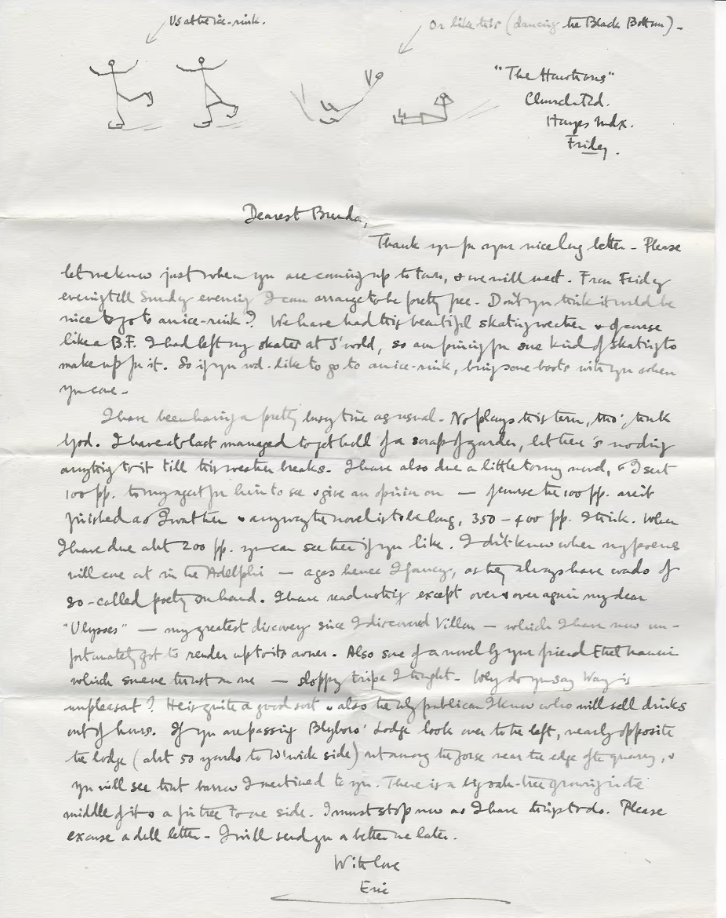 Us at the ice-rink.
Or like this (dancing the Black Bottom) -
"The Hawthorns"
Church Rd.
Hayes Mdx.
Friday.
Dearest Brenda,
Thank you for your nice long letter - Please
let me know just when you are coming up to town, & we will meet. From Friday
evening till Sunday evening I can arrange to be pretty free. Don't you think it would be
nice to go to an ice-rink? We have had this beautiful skating weather & of course
like a B.F. I had left my skates at S'wold, so am pining for some kind of skating to
make up for it. So if you wd. like to go to an ice-rink, bring some boots with you when
you come -
I have been having a pretty busy time as usual - No plays this term, tho', thank
God. I have at last managed to get hold of a scrap of garden, but there's no doing
anything to it till this weather breaks. I have also done a little to my novel, & I sent
100 pp. to my agent for him to see & give an opinion on — of course the 100 pp. aren't
finished as I want them & anyway the novel is to be long, 350 - 400 pp. I think. When
I have done abt 200 pp. you can see them if you like. I don't know when my poems
will come out in the Adelphi — ages hence I fancy, as they always have wads of
so-called poetry on hand. I have read nothing except over & over again my dear
"Ulysses" — my greatest discovery since I discovered Villon — which I have now un-
fortunately got to render up to its owner. Also some of a novel by your friend Ethel Mannin
which someone thrust on me — sloppy tripe I thought - Why do you say Way is
unpleasant? He is quite a good sort & also the only publican I know who will sell drinks
out of hours. If you are passing Blyboro' Lodge look over to the left, nearly opposite
the lodge (abt 50 yards to W'wick side) out among the gorse near the edge of the quarry, &
you will see that barrow I mentioned to you. There is a big oak-tree growing in the
middle of it & a fir tree to one side. I must stop now as I have things to do. Please
excuse a dull letter - I will send you a better one later.
With love
Eric